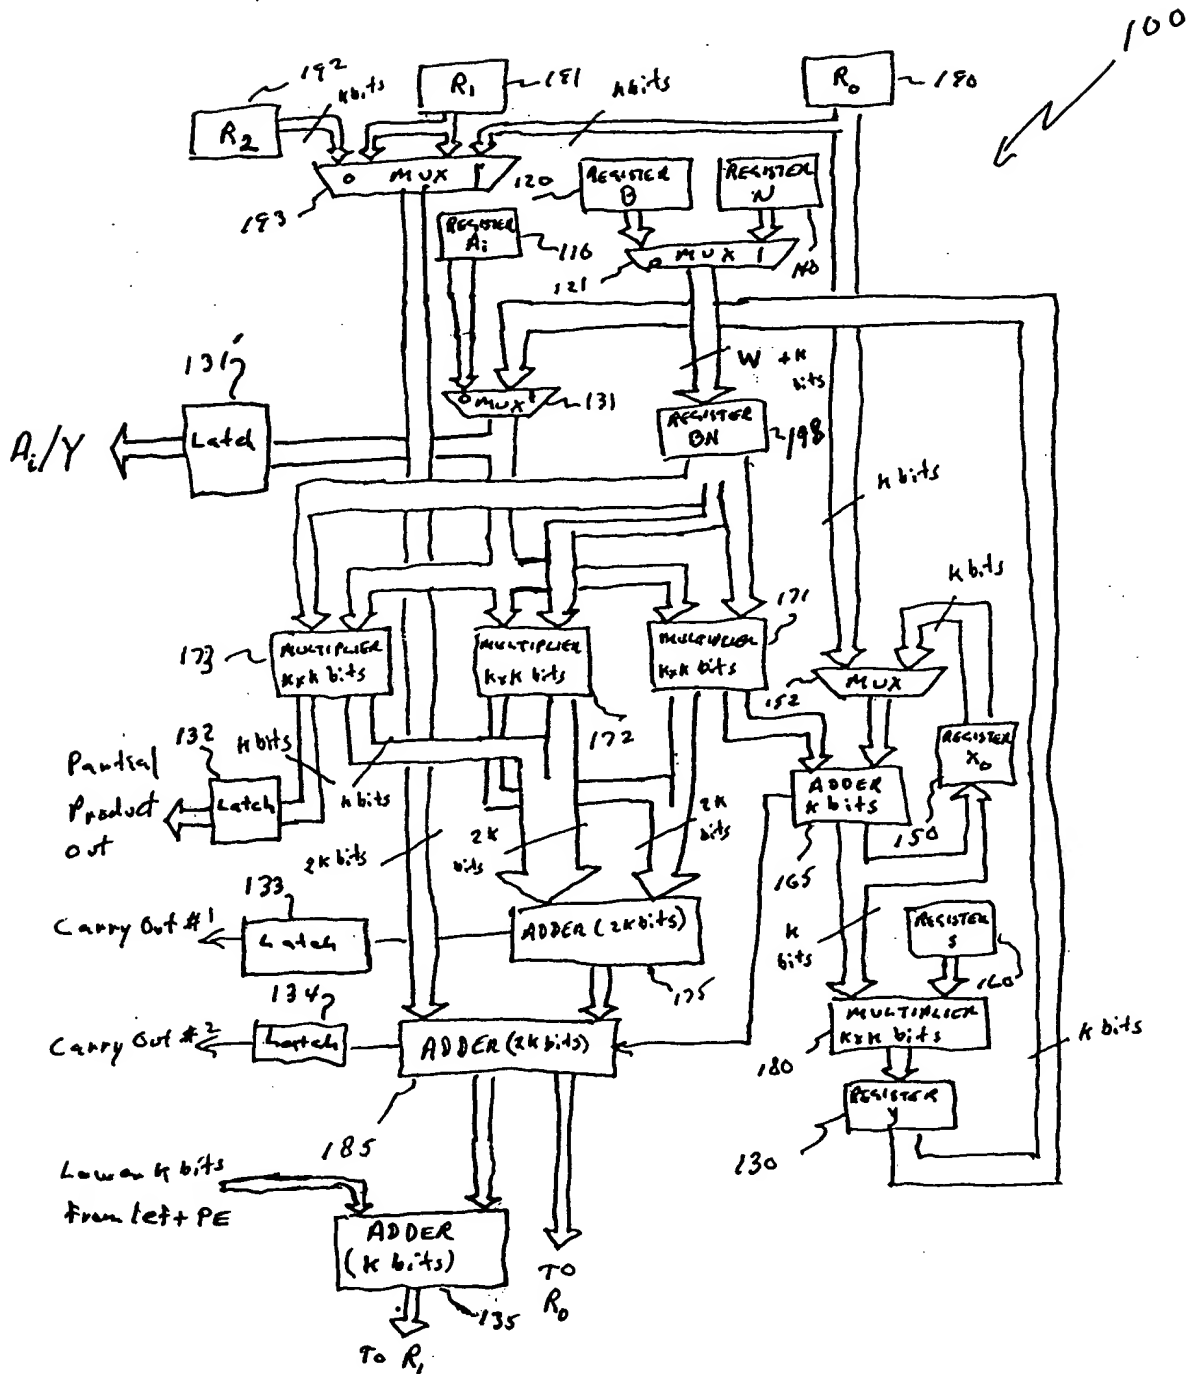 100
192
k bits
R2
R1
191
k bits
R0
190
0 MUX 1
193
120
REGISTER B
REGISTER N
REGISTER Ai
110
0 MUX 1
121
140
W + k bits
131'
Latch
Ai/Y
0 MUX 1
131
REGISTER BN
198
k bits
k bits
171
173
MULTIPLIER
k x k bits
MULTIPLIER
k x k bits
MULTIPLIER
k x k bits
172
MUX
152
REGISTER X0
150
132
Partial Product Out
Latch
k bits
k bits
ADDER
k bits
165
2k bits
2k bits
2k bits
133
Carry Out #1
Latch
ADDER (2k bits)
175
k bits
REGISTER S
160
134
Carry Out #2
Latch
ADDER (2k bits)
185
MULTIPLIER
k x k bits
180
k bits
REGISTER Y
130
Lower k bits
From left PE
ADDER
(k bits)
135
TO R0
TO R1